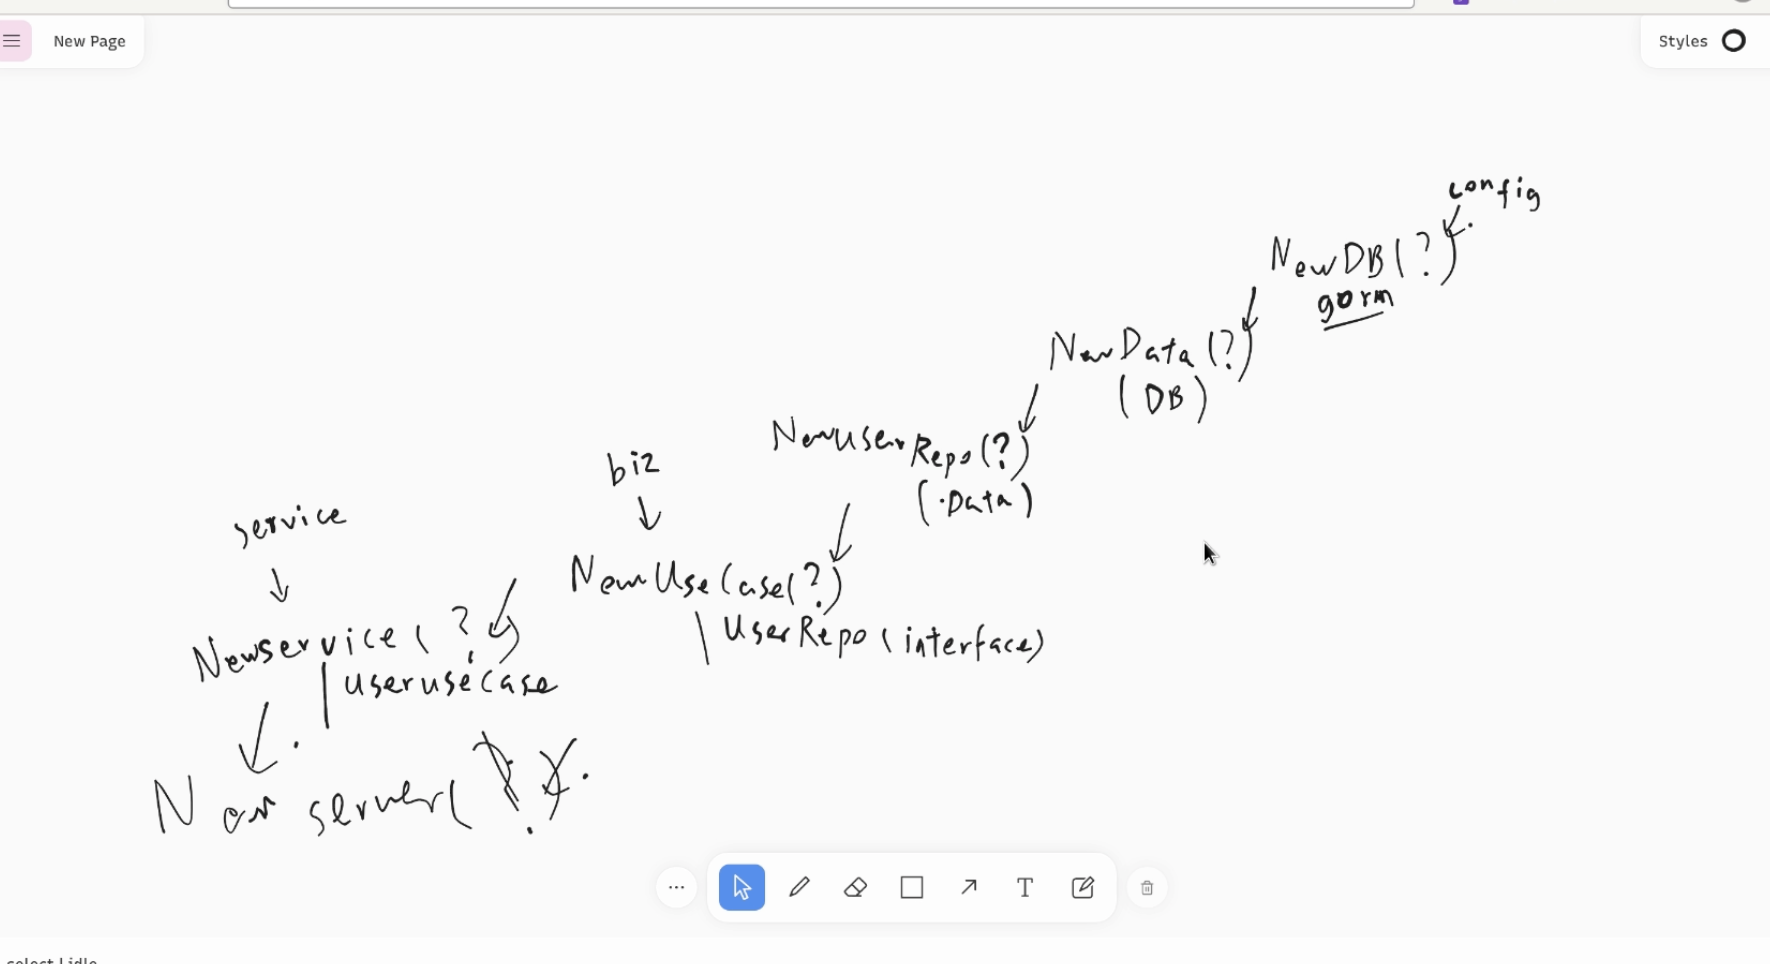 New Page
Styles
config
NewDB(?)
gorm
NewData(?)
(DB)
NewUserRepo(?)
(.Data)
biz
service
NewUseCase(?)
UserRepo(interface)
Newservice(?)
userusecase
New server(?)
T
select | idle